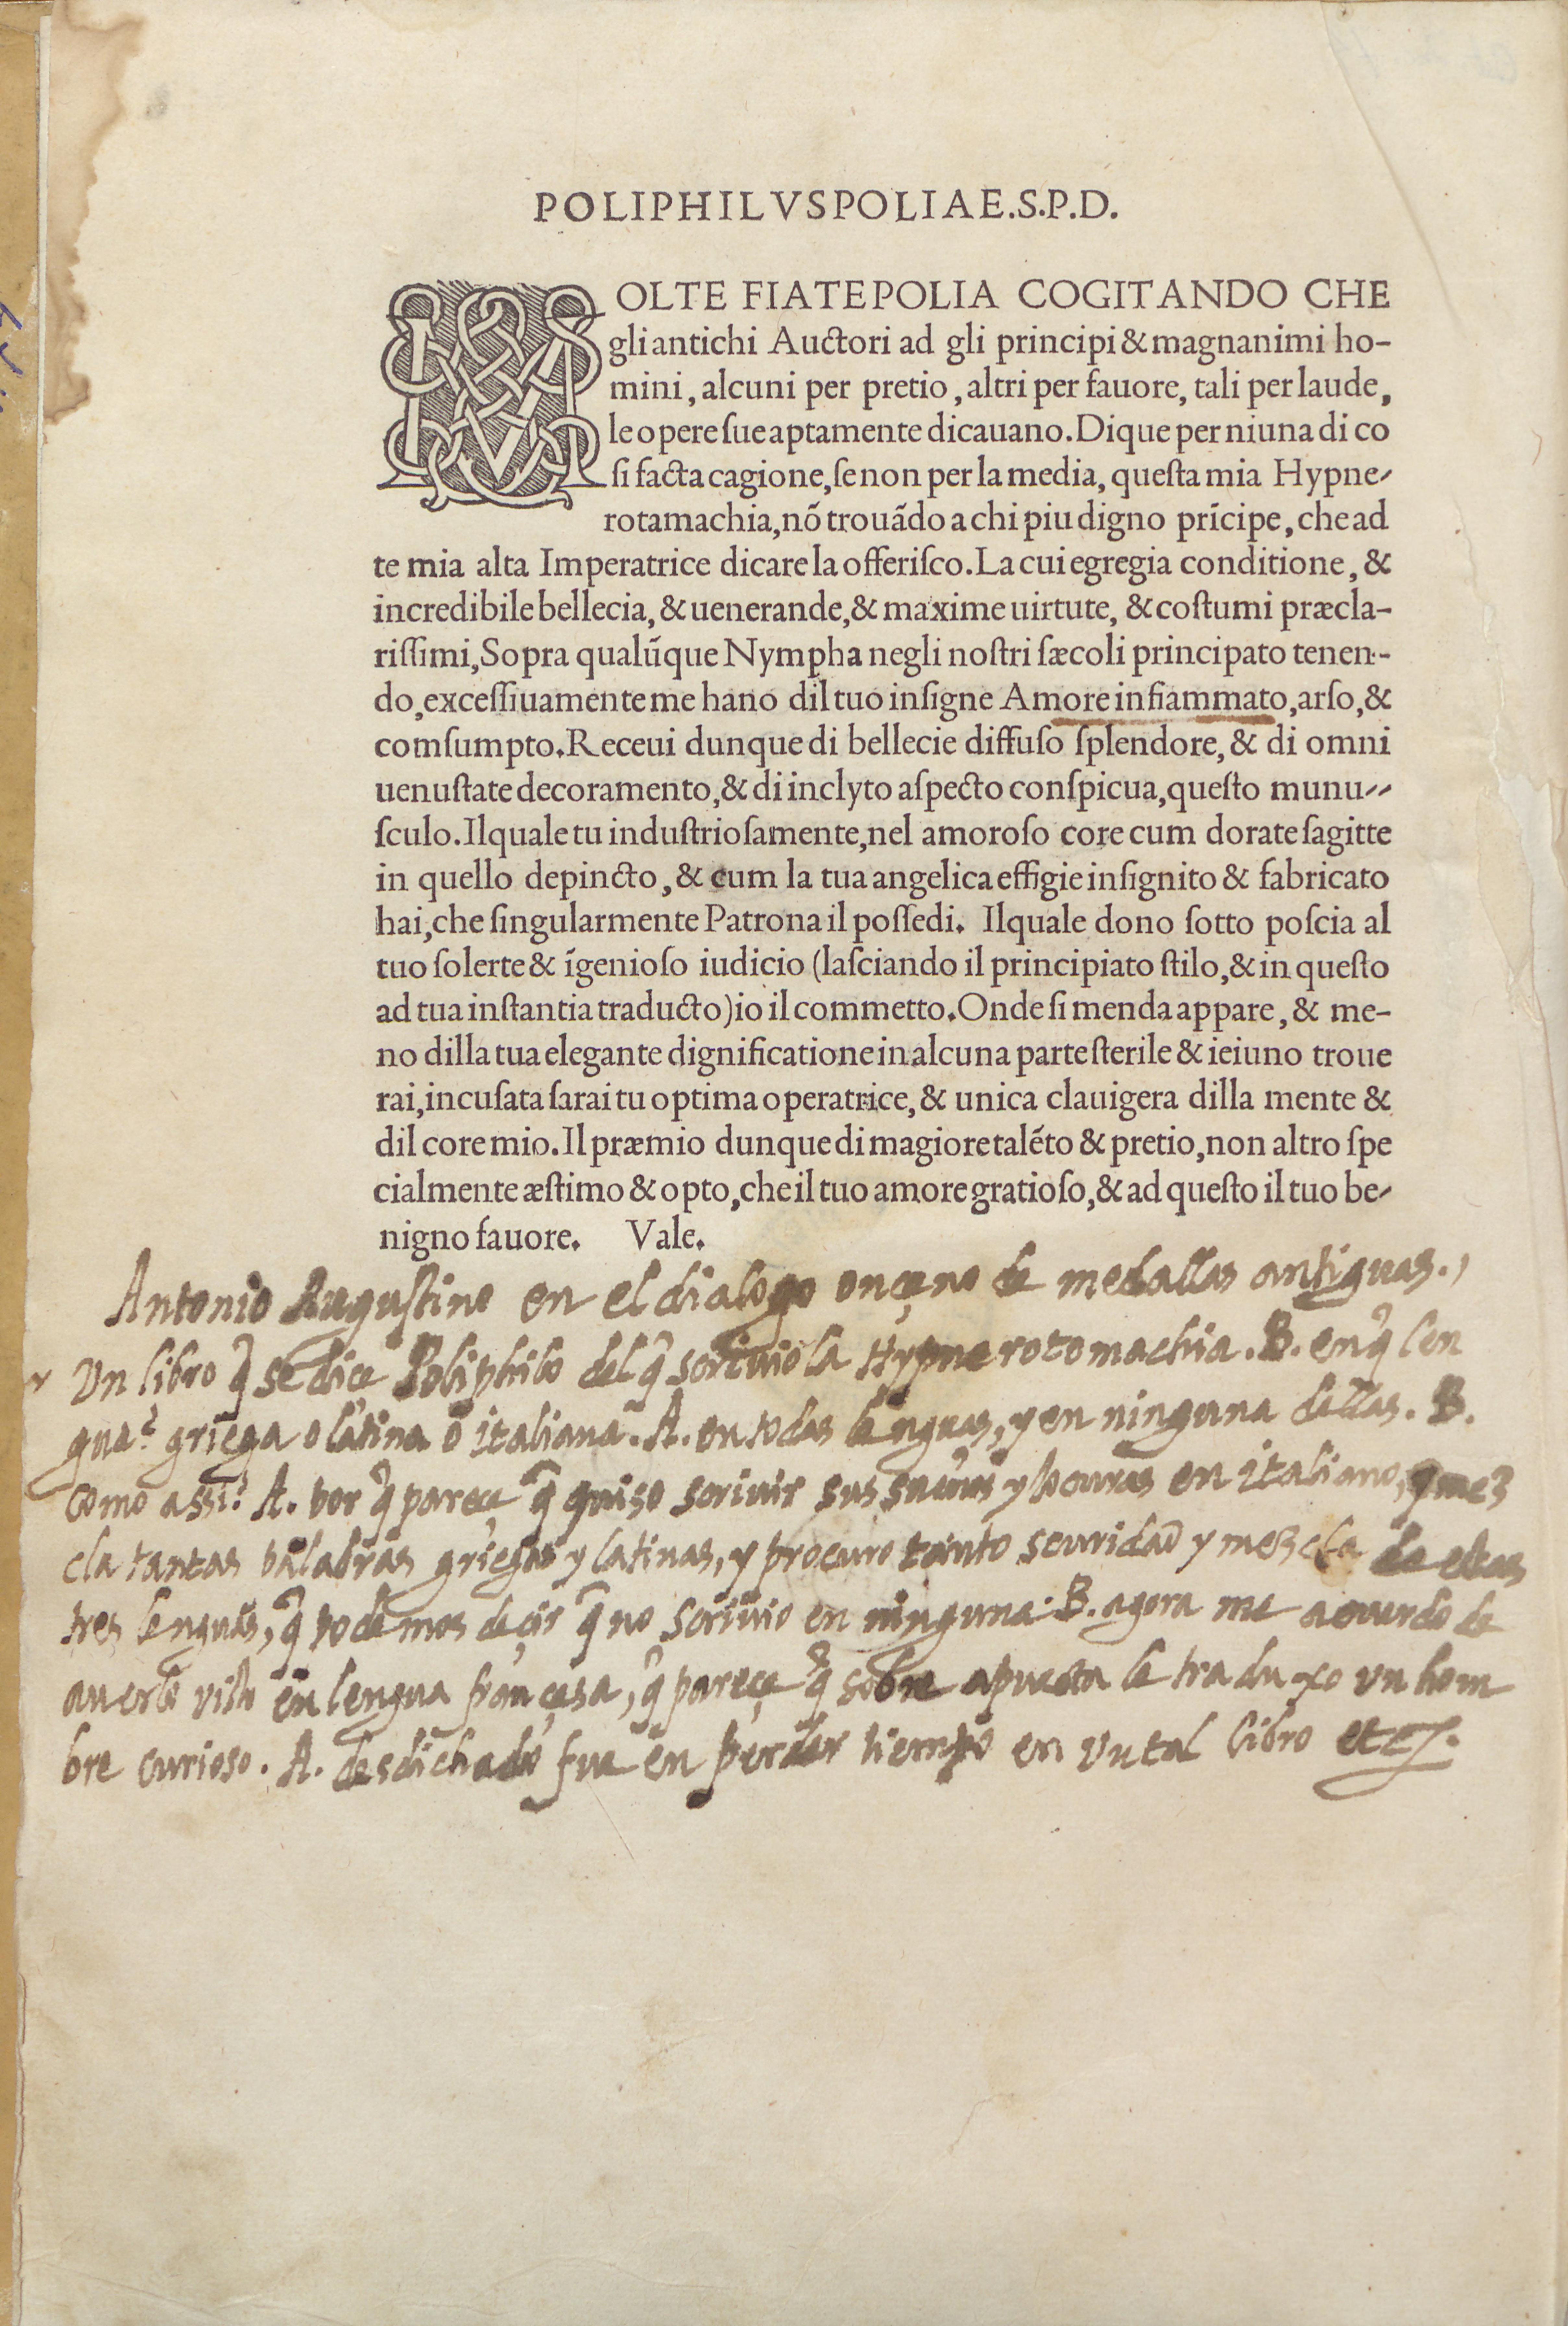 POLIPHILVS POLIAE.S.P.D.
MOLTE FIATE POLIA COGITANDO CHE
gli antichi Auctori ad gli principi & magnanimi ho-
mini, alcuni per pretio, altri per fauore, tali per laude,
le opere sue aptamente dicauano. Dique per niuna di co
si facta cagione, se non per la media, questa mia Hypne-
rotamachia, nõ trouãdo a chi piu digno prĩcipe, che ad
te mia alta Imperatrice dicare la offerisco. La cui egregia conditione, &
incredibile bellecia, & uenerande, & maxime uirtute, & costumi præcla-
rissimi, Sopra qualũque Nympha negli nostri sæcoli principato tenen-
do, excessiuamente me hano dil tuo insigne Amore infiammato, arso, &
comsumpto. Receui dunque di bellecie diffuso splendore, & di omni
uenustate decoramento, & di inclyto aspecto conspicua, questo munu-
sculo. Ilquale tu industriosamente, nel amoroso core cum dorate sagitte
in quello depincto, & cum la tua angelica effigie insignito & fabricato
hai, che singularmente Patrona il possedi. Ilquale dono sotto poscia al
tuo solerte & ĩgenioso iudicio (lasciando il principiato stilo, & in questo
ad tua instantia traducto) io il commetto. Onde si menda appare, & me-
no dilla tua elegante dignificatione in alcuna parte sterile & ieiuno troue
rai, incusata sarai tu optima operatrice, & unica clauigera dilla mente &
dil core mio. Il præmio dunque di magiore talẽto & pretio, non altro spe
cialmente æstimo & opto, che il tuo amore gratioso, & ad questo il tuo be-
nigno fauore. Vale.
Antonio Augustino en el dialogo onçeno de medallas antiguas.,
Un libro q̃ se dice Poliphilo del q̃ scriuio la Hypnerotomachia. B. en q̃ len
gua? griega o latina o italiana. A. en todas lenguas, y en ninguna dellas. B.
Como assi? A. por q̃ pareçe q̃ quiso scriuir sus sueños y locuras en italiano, y mez
cla tantas palabras griegas y latinas, y procuro tanto scuridad y mezcla de estas
tres lenguas, q̃ podemos deçir q̃ no scriuio en ninguna. B. agora me acuerdo de
auerlo visto en lengua françesa, q̃ pareçe q̃ sobre apuesta le traduxo un hom
bre curioso. A. desdichado fue en perder tiempo en un tal libro etc.